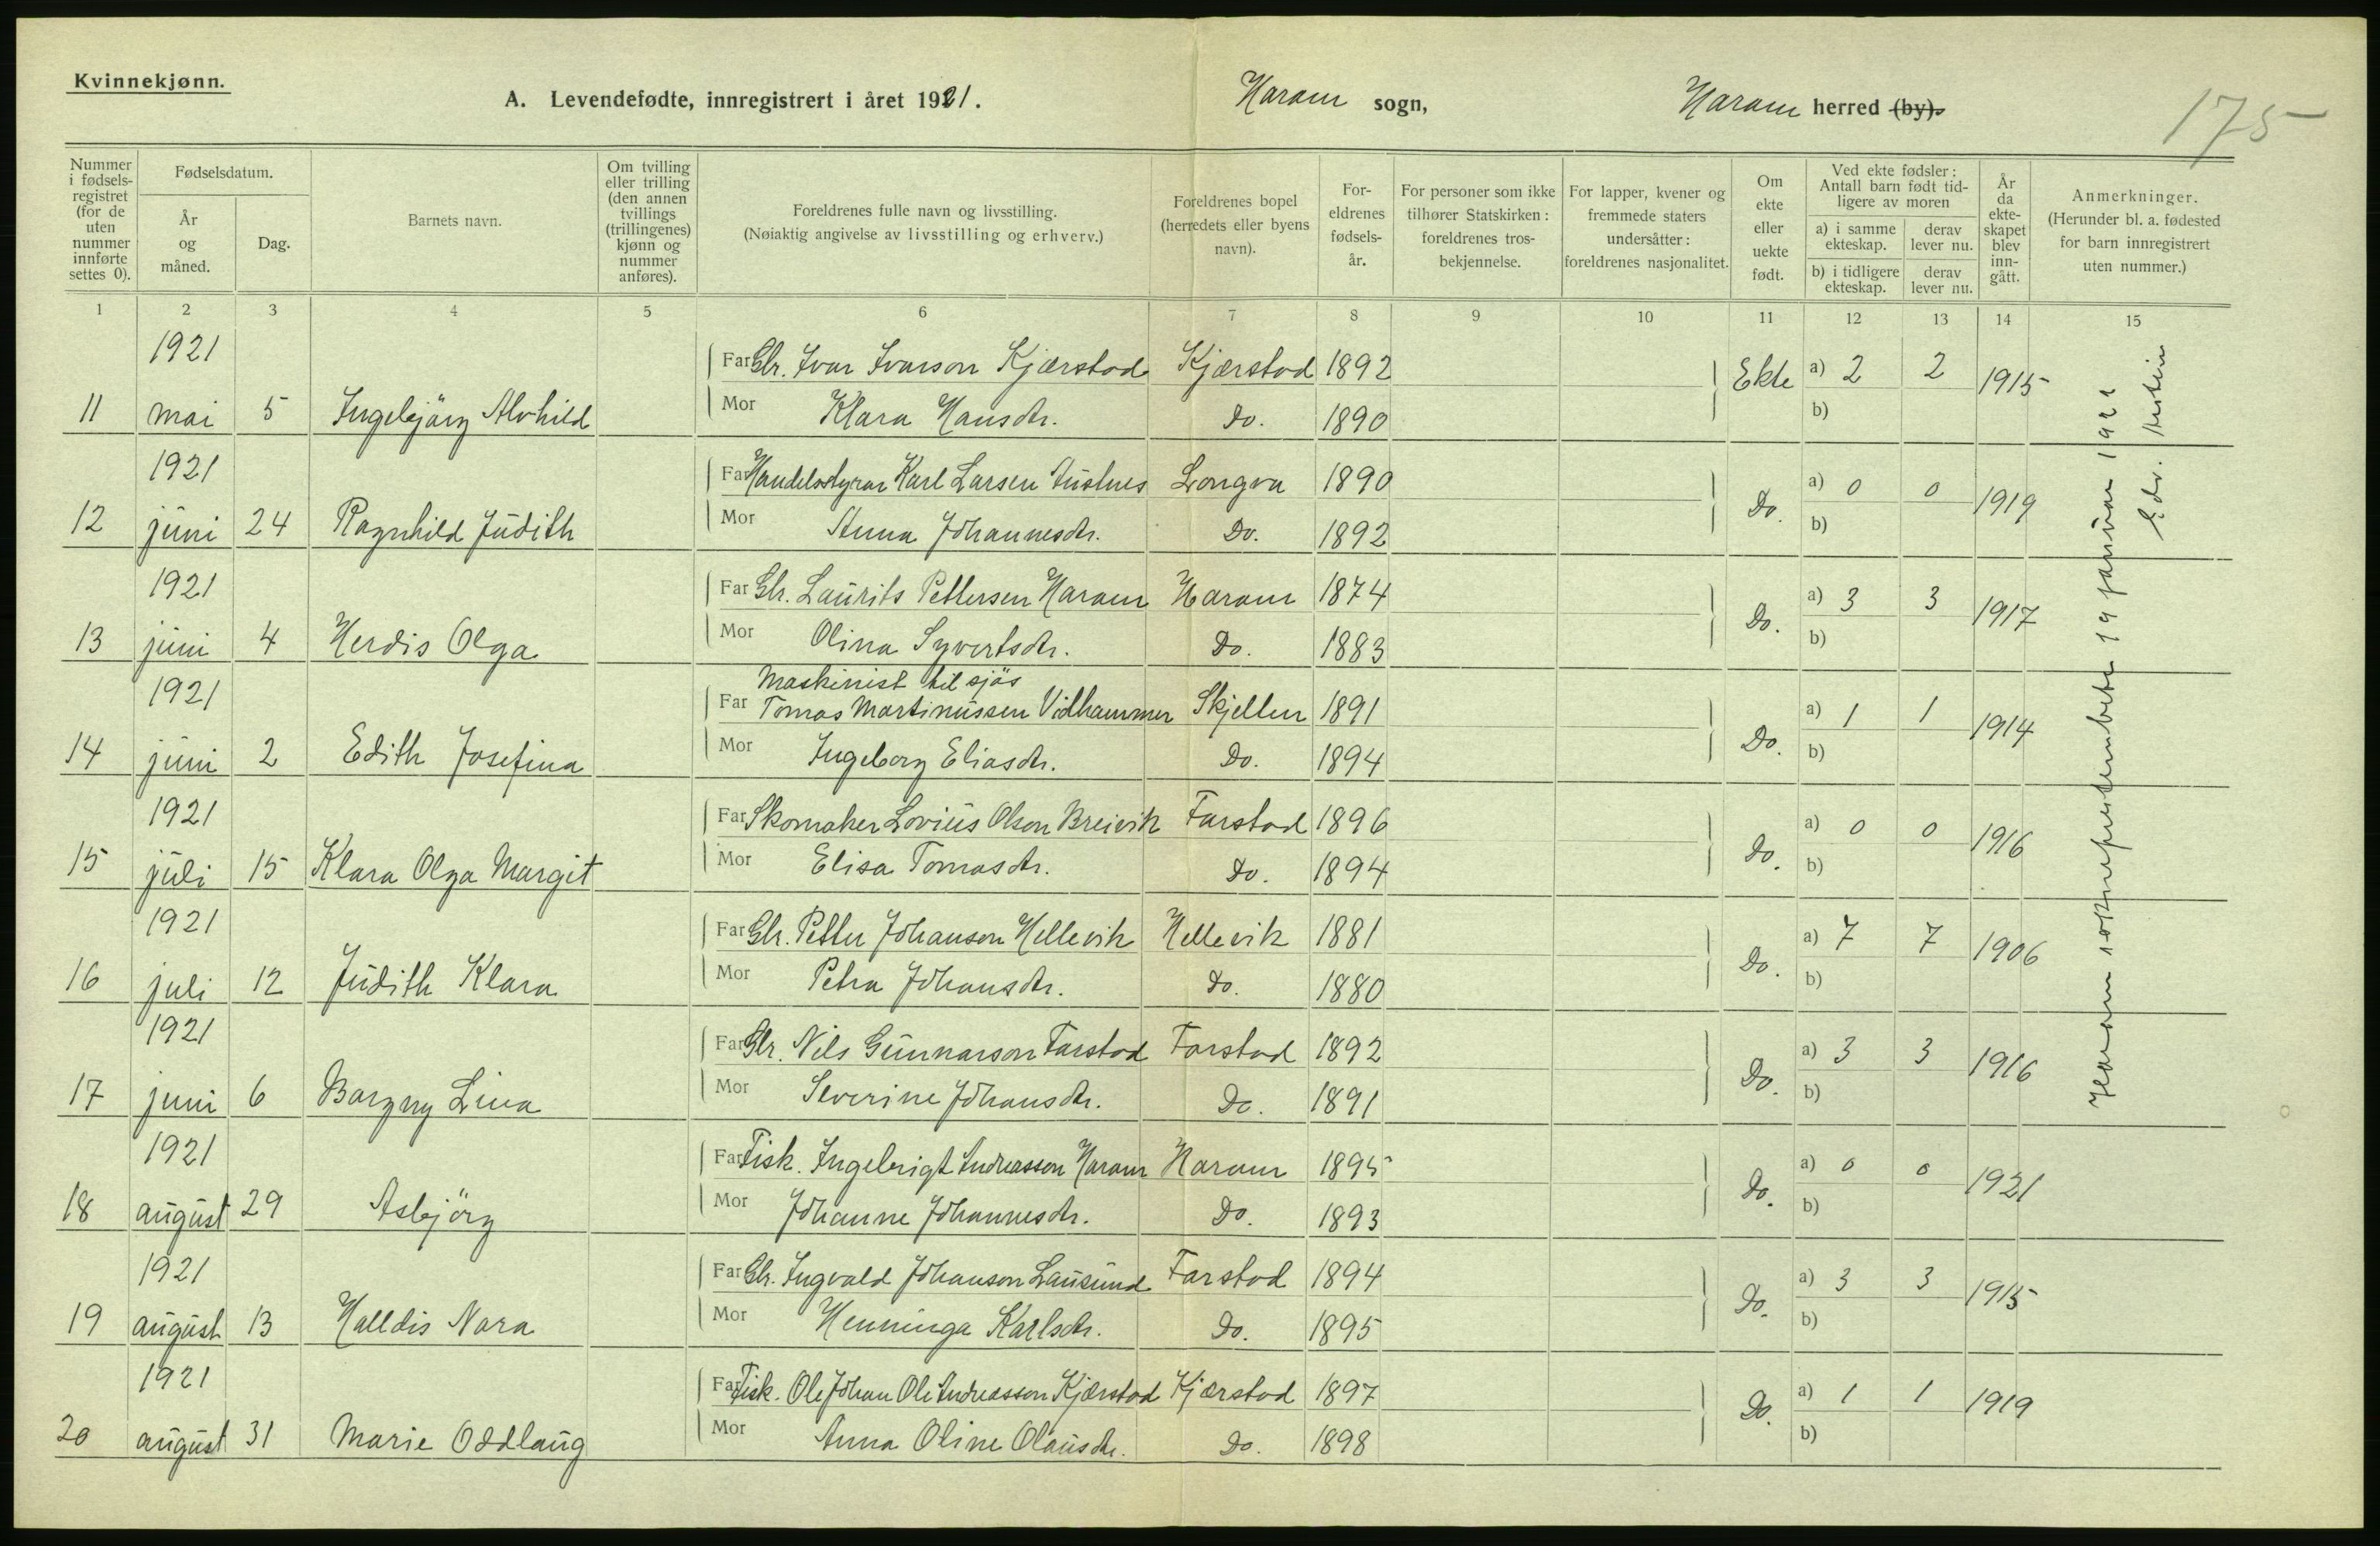 Kvinnekjønn.
A. Levendefødte, innregistrert i året 1921.
Haram sogn,
Haram herred (by).
175
Nummer i fødsels-registret (for de uten nummer innførte settes 0).
Fødselsdatum.
År og måned.
Dag.
Barnets navn.
Om tvilling eller trilling (den annen tvillings (trillingenes) kjønn og nummer anføres).
Foreldrenes fulle navn og livsstilling.
(Nøiaktig angivelse av livsstilling og erhverv.)
Foreldrenes bopel (herredets eller byens navn).
For-eldrenes fødsels-år.
For personer som ikke tilhører Statskirken: foreldrenes tros-bekjennelse.
For lapper, kvener og fremmede staters undersåtter: foreldrenes nasjonalitet.
Om ekte eller uekte født.
Ved ekte fødsler: Antall barn født tid-ligere av moren
a) i samme ekteskap.
derav lever nu.
b) i tidligere ekteskap.
derav lever nu.
År da ekte-skapet blev inn-gått.
Anmerkninger.
(Herunder bl. a. fødested for barn innregistrert uten nummer.)
1 2 3 4 5 6 7 8 9 10 11 12 13 14 15
1921
Far Gbr. Ivar Ivarson Kjærstad Kjærstad 1892 Ekte a) 2 2 1915
11 mai 5 Ingebjörg Alvhild Mor Klara Hansdtr. Do. 1890 b)
1921
Far Handelsstyrar Karl Larsen Austnes Longva 1890 Do. a) 0 0 1919
12 juni 24 Ragnhild Judith Mor Anna Johannesdtr. Do. 1892 b)
1921
Far Gbr. Laurits Pettersen Haram Haram 1874 Do. a) 3 3 1917
13 juni 4 Herdis Olga Mor Olina Syvertsdtr. Do. 1883 b)
1921
Maskinist til sjös
Far Tomas Martinussen Vidhammer Skjelten 1891 Do. a) 1 1 1914
14 juni 2 Edith Josefina Mor Ingeborg Eliasdtr. Do. 1894 b)
1921
Far Skomaker Lovius Olson Breivik Farstad 1896 Do. a) 0 0 1916
15 juli 15 Klara Olga Margit Mor Elisa Tomasdtr. Do. 1894 b)
1921
Far Gbr. Petter Johanson Hellevik Hellevik 1881 Do. a) 7 7 1906
16 juli 12 Judith Klara Mor Petra Johansdtr. Do. 1880 b)
1921
Far Gbr. Nils Gunnarson Farstad Farstad 1892 Do. a) 3 3 1916
17 juni 6 Borgny Lina Mor Severine Johansdtr. Do. 1891 b)
1921
Far Fisk. Ingebrigt Andreasson Haram Haram 1895 Do. a) 0 0 1921
18 august 29 Asbjörg Mor Johanne Johannesdtr. Do. 1893 b)
1921
Far Gbr. Ingvald Johanson Lausund Farstad 1894 Do. a) 3 3 1915
19 august 13 Halldis Nora Mor Henninga Karlsdtr. Do. 1895 b)
1921
Far Fisk. Ole Johan Ole Andreasson Kjærstad Kjærstad 1897 Do. a) 1 1 1919
20 august 31 Marie Oddlaug Mor Anna Oline Olausdtr. Do. 1898 b)
Haram sokneprestembete 19 januar 1922
Edv.